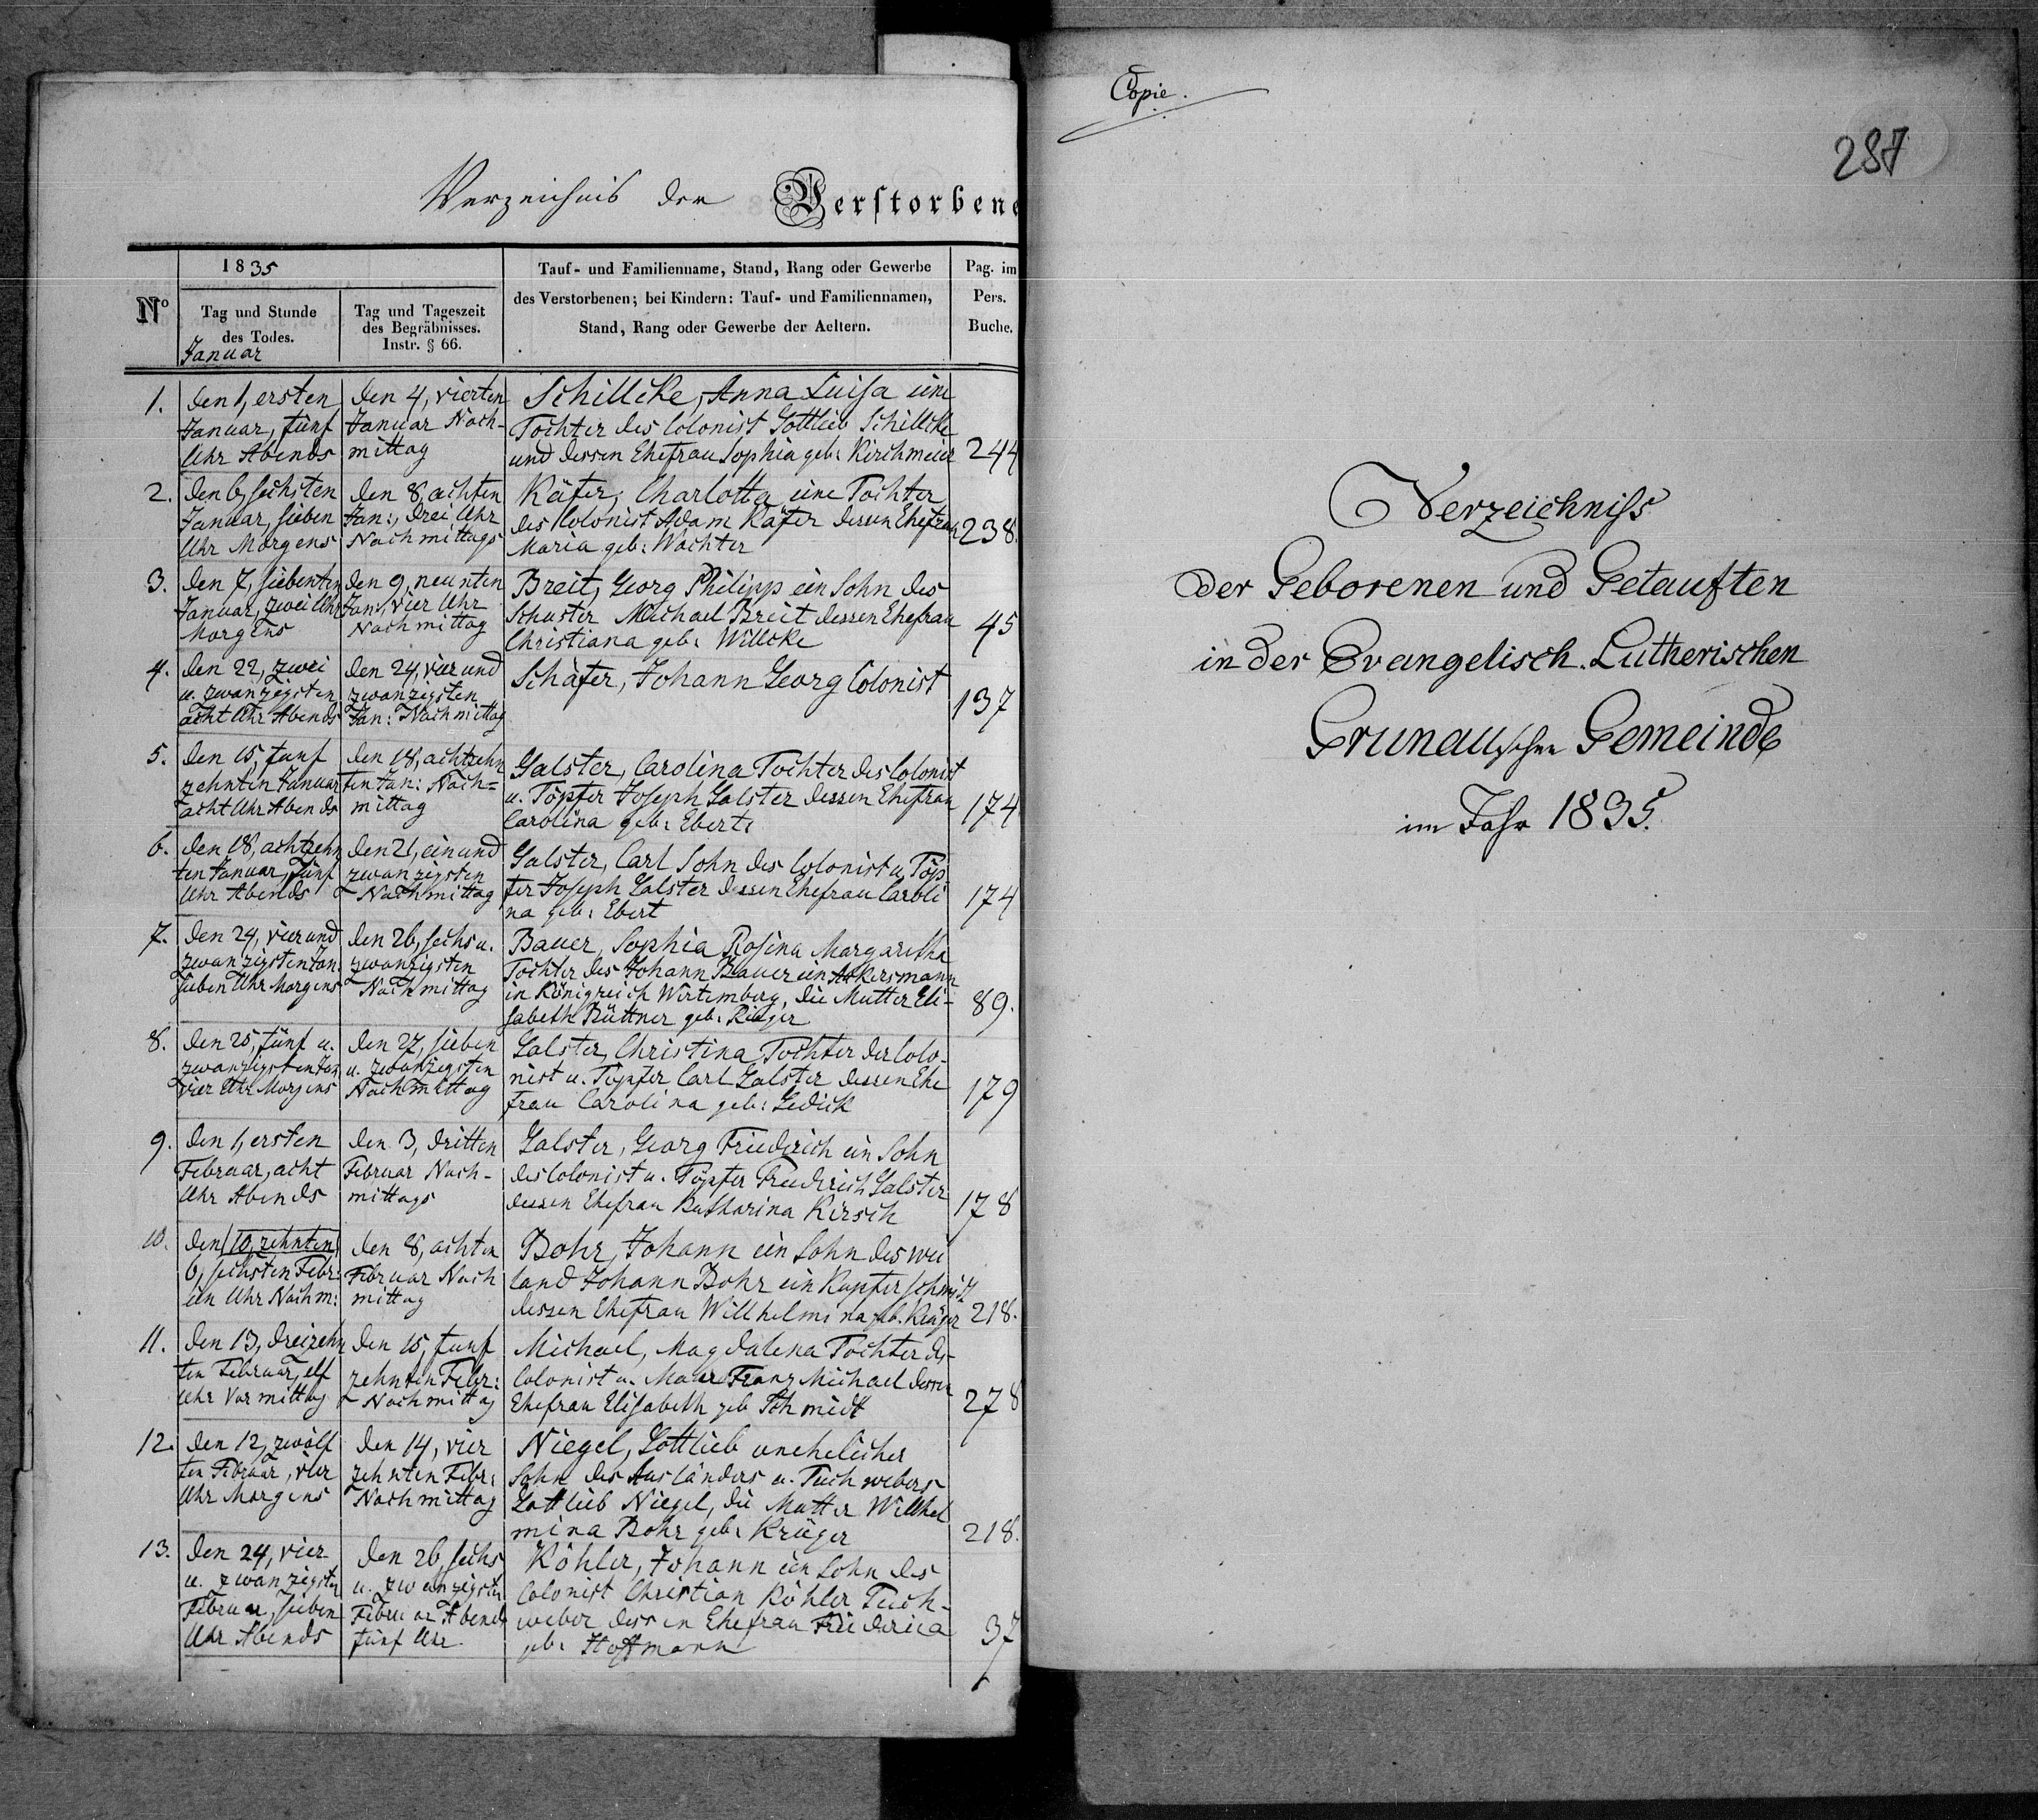 Verzeichnis der Verstorbene
1835
Tag und Stunde
des Todes.
Januar
Tag und Tageszeit
des Begräbnisses.
Instr. § 66.
Tauf- und Familienname, Stand, Rang oder Gewerbe
des Verstorbenen; bei Kindern: Tauf- und Familiennamen,
Stand, Rang oder Gewerbe der Aeltern.
Pag. im
Pers.
Buche.
N°
1.
den 1, ersten
Januar, fünf
Uhr Abends
den 4, vierten
Januar Nach-
mittag
Schillcke, Anna Luisa eine
Tochter des Colonist Gottlieb Schillcke
und dessen Ehefrau Sophia geb: Kirchmeier
244
2.
den 6, sechsten
Januar, sieben
Uhr Morgens
den 8, achten
Jan:, drei Uhr
Nachmittags
Käfer, Charlotta eine Tochter
des Colonist Adam Käfer dessen Ehefrau
Maria geb: Wachter
238.
3.
den 7, siebenten
Januar, zwei Uhr
Morgens
den 9, neunten
Jan, vier Uhr
Nachmittag
Breit, Georg Philipp ein Sohn des
Schuster Michael Breit dessen Ehefrau
Christiana geb: Willcke
45
4.
den 22, zwei
u. zwanzigsten
acht Uhr Abends
den 24, vier und
zwanzigsten
Jan: Nachmittag
Schäfer, Johann Georg Colonist
137
5.
den 15, funf
zehnten Januar
acht Uhr Abends
den 18, achtzehn
ten Jan: Nach=
mittag
Galster, Carolina Tochter des Colonist
u. Töpfer Joseph Galster dessen Ehefrau
Carolina geb: Ebert:
174
6.
den 18, achtzehn
ten Januar, Fünf
Uhr Abends
den 21, ein und
zwanzigsten
Nachmittag
Galster, Carl Sohn des Colonist u. Töp
fer Joseph Galster dessen Ehefrau Caroli
na geb: Ebert
174
7.
den 24, vier und
zwanzigsten Jan.
sieben Uhr Morgens
den 26, sechs u.
zwanzigsten
Nachmittag
Bauer, Sophia Rosina Margaretha
Tochter des Johann Bauer ein Ackersmann
in Königreich Wirtemberg, die Mutter Eli-
sabeth Büttner geb: Rieger
89.
8.
den 25, fünf u.
zwanzigsten Jan
vier Uhr Morgens
den 27, sieben
u. zwanzigsten
Nachmittag
Galster, Christina Tochter des Colo-
nist u. Töpfer Carl Galster dessen Ehe
frau Carolina geb: Gedick
179
9.
den 1, ersten
Februar, acht
Uhr Abends
den 3, dritten
Februar Nach-
mittags
Galster, Georg Friedrich ein Sohn
des Colonist u. Töpfer Friedrich Galster
dessen Ehefrau Katharina Kirsch
178
10.
den 10, zehnten
6, sechsten Febr:
ein Uhr Nachm:
den 8, achten
Februar Nach
mittag
Bohr, Johann ein Sohn des wei
land Johann Bohr ein Kupferschmidt
dessen Ehefrau Willhelmina geb. Krüger
218.
11.
den 13, dreizehn
ten Februar, elf
Uhr Vormittag
den 15, funf
zehnten Febr:
Nachmittag
Michael, Magdalena Tochter des
Colonist u. Maler Franz Michael dessen
Ehefrau Elisabeth geb Schmidt
278
12.
den 12, zwölf
ten Februar, vier
Uhr Morgens
den 14, vier
zehnten Febr:
Nachmittag
Niegel, Gottlieb unehelicher
Sohn des Ausländers u. Tuchwebers
Gottlieb Niegel, die Mutter Willhel
mina Bohr geb: Krüger
218.
13.
den 24, vier
u. zwanzigsten
Februar, sieben
Uhr Abends
den 26, sechs
u. zwanzigsten
Februar Abends
fünf Uhr.
Köhler, Johann ein Sohn des
Colonist Christian Köhler Tuch-
weber dessen Ehefrau Friederica
geb: Hoffmann
37
Copie.
287
Verzeichniss
der Geborenen und Getauften
in der Evangelisch. Lutherischen
Grunauschen Gemeinde
im Jahr 1835.